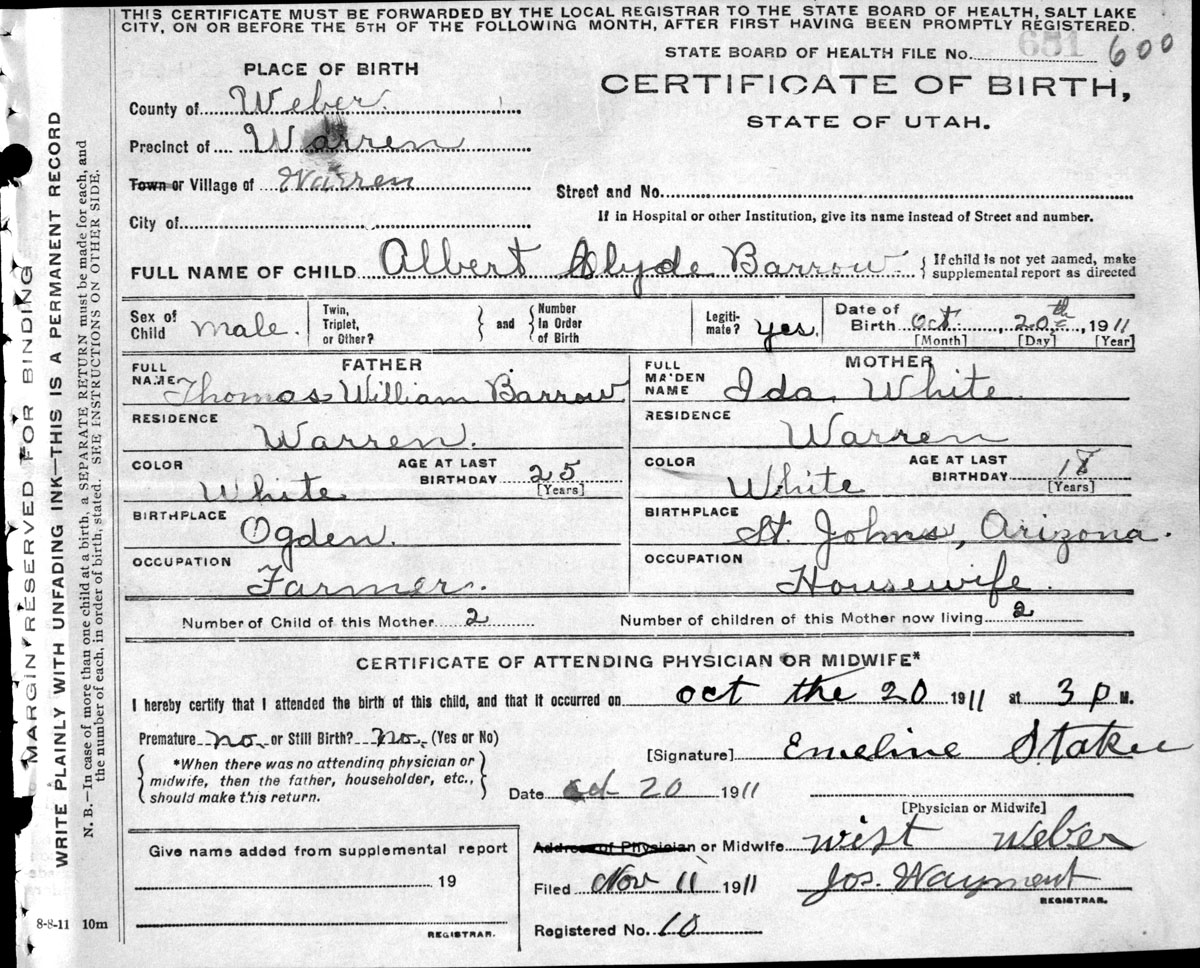 THIS CERTIFICATE MUST BE FORWARDED BY THE LOCAL REGISTRAR TO THE STATE BOARD OF HEALTH, SALT LAKE
CITY, ON OR BEFORE THE 5TH OF THE FOLLOWING MONTH, AFTER FIRST HAVING BEEN PROMPTLY REGISTERED.
STATE BOARD OF HEALTH FILE No. 651 600
PLACE OF BIRTH
CERTIFICATE OF BIRTH,
STATE OF UTAH.
County of Weber.
Precinct of Warren
Town or Village of Warren
Street and No.
City of
If in Hospital or other Institution, give its name instead of Street and number.
FULL NAME OF CHILD Albert Clyde Barrow { If child is not yet named, make
supplemental report as directed
Sex of Child male. Twin, Triplet, or Other? } and { Number In Order of Birth Legiti-mate? yes. Date of Birth Oct. , 20th , 1911
[Month] [Day] [Year]
FATHER MOTHER
FULL NAME Thomas William Barrow FULL MAIDEN NAME Ida White.
RESIDENCE Warren. RESIDENCE Warren
COLOR White AGE AT LAST BIRTHDAY 25 [Years] COLOR White AGE AT LAST BIRTHDAY 18 [Years]
BIRTHPLACE Ogden. BIRTHPLACE St. Johns, Arizona.
OCCUPATION Farmer. OCCUPATION Housewife.
Number of Child of this Mother 2 Number of children of this Mother now living 2
CERTIFICATE OF ATTENDING PHYSICIAN OR MIDWIFE*
I hereby certify that I attended the birth of this child, and that it occurred on oct the 20 1911 at 3 p M.
Premature no. or Still Birth? no. (Yes or No)
[Signature] Emeline Staker
{ *When there was no attending physician or
midwife, then the father, householder, etc.,
should make this return. }
Date oct 20 1911
[Physician or Midwife]
Address of Physician or Midwife wist Weber
Give name added from supplemental report
19
Filed Nov 11 1911 Jos. Wayment
REGISTRAR.
Registered No. 10
REGISTRAR.
8-8-11 10m
MARGIN RESERVED FOR BINDING
WRITE PLAINLY WITH UNFADING INK—THIS IS A PERMANENT RECORD
N. B.—In case of more than one child at a birth, a SEPARATE RETURN must be made for each, and
the number of each, in order of birth, stated. SEE INSTRUCTIONS ON OTHER SIDE.